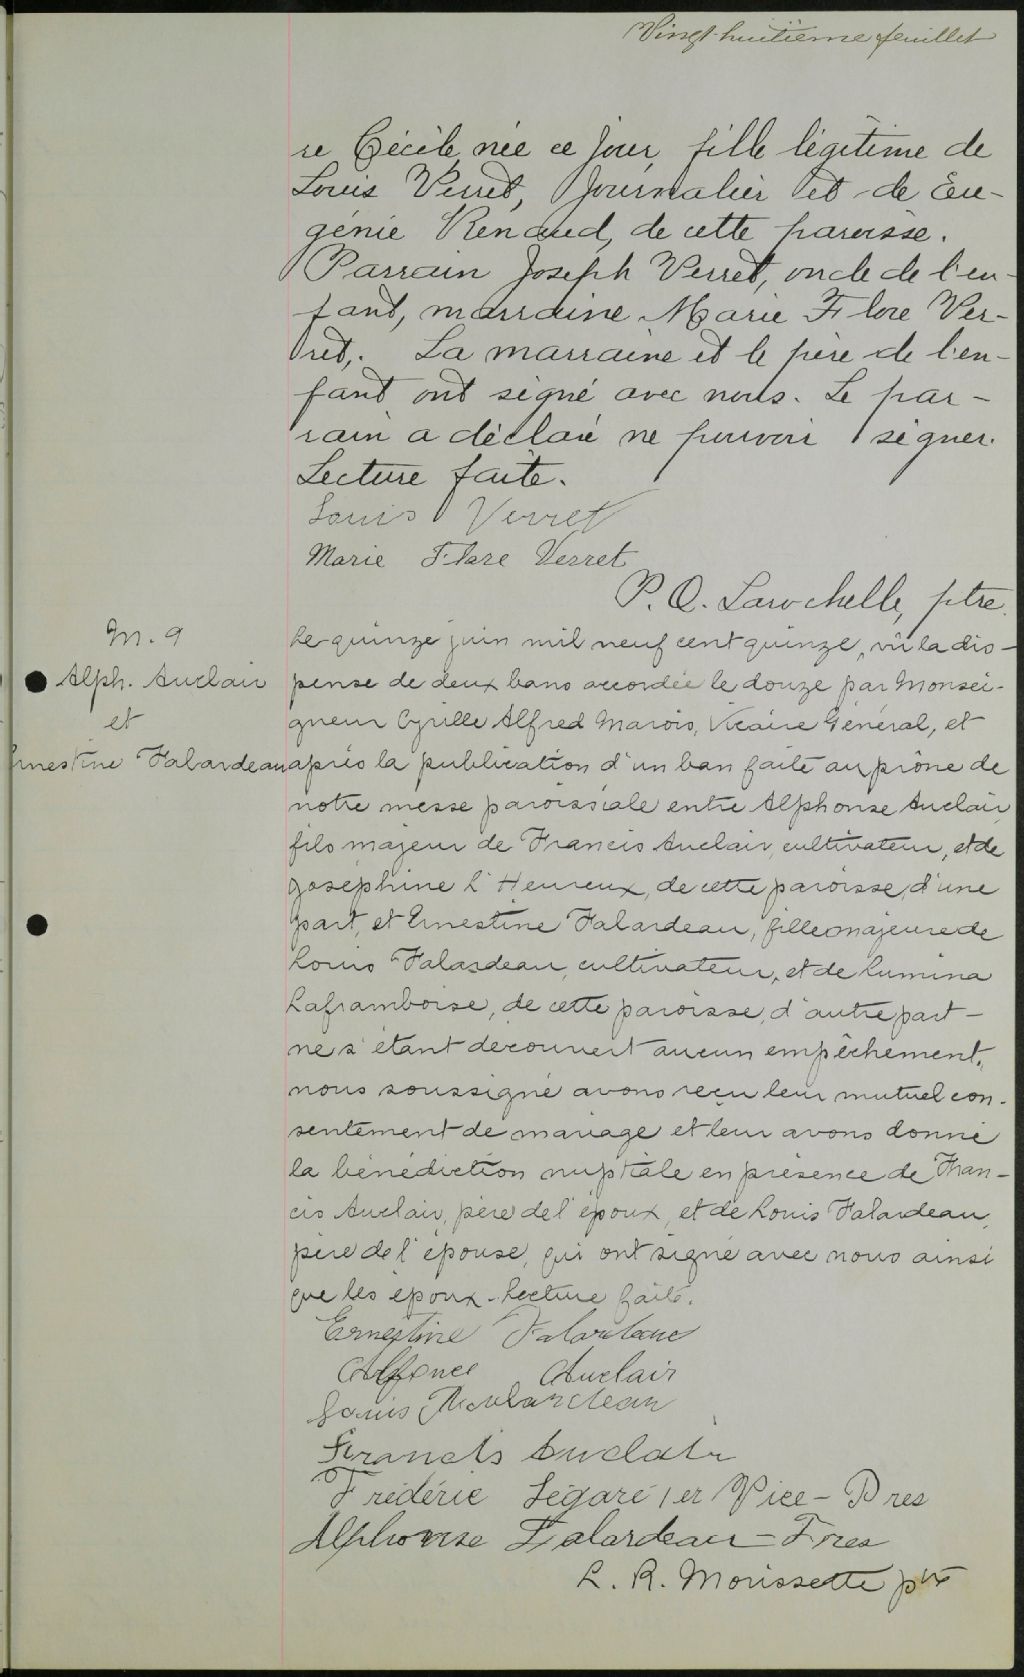 Vingt-huitième feuillet
re Cécile, née ce jour, fille légitime de
Louis Verret, Journalier et de Eu-
génie Renaud, de cette paroisse.
Parrain Joseph Verret, oncle de l'en-
fant, marraine Marie Flore Ver-
ret,. La marraine et le père de l'en-
fant ont signé avec nous. Le par-
rain a déclaré ne pouvoir signer.
Lecture faite.
Louis Verret
Marie Flore Verret
P. O. Larochelle, ptre.
M. 9
Alph. Auclair
et
Ernestine Falardeau
Le quinze juin mil neuf cent quinze, vu la dis-
pense de deux bans accordée le douze par Monsei-
gneur Cyrille Alfred Marois, Vicaire Général, et
après la publication d'un ban faite au prône de
notre messe paroissiale entre Alphonse Auclair,
fils majeur de Francis Auclair, cultivateur, et de
Joséphine L'Heureux, de cette paroisse, d'une
part, et Ernestine Falardeau, fille majeure de
Louis Falardeau, cultivateur, et de Lumina
Laframboise, de cette paroisse, d'autre part -
ne s'étant découvert aucun empêchement,
nous soussigné avons reçu leur mutuel con-
sentement de mariage et leur avons donné
la bénédiction nuptiale en présence de Fran-
cis Auclair, père de l'époux, et de Louis Falardeau,
père de l'épouse, qui ont signé avec nous ainsi
que les époux - Lecture faite.
Ernestine Falardeau
Alfonce Auclair
Louis Falardeau
Francis Auclair
Frédéric Légaré 1er Vice-Pres
Alphonse Falardeau - Tres
L. R. Morissette ptre